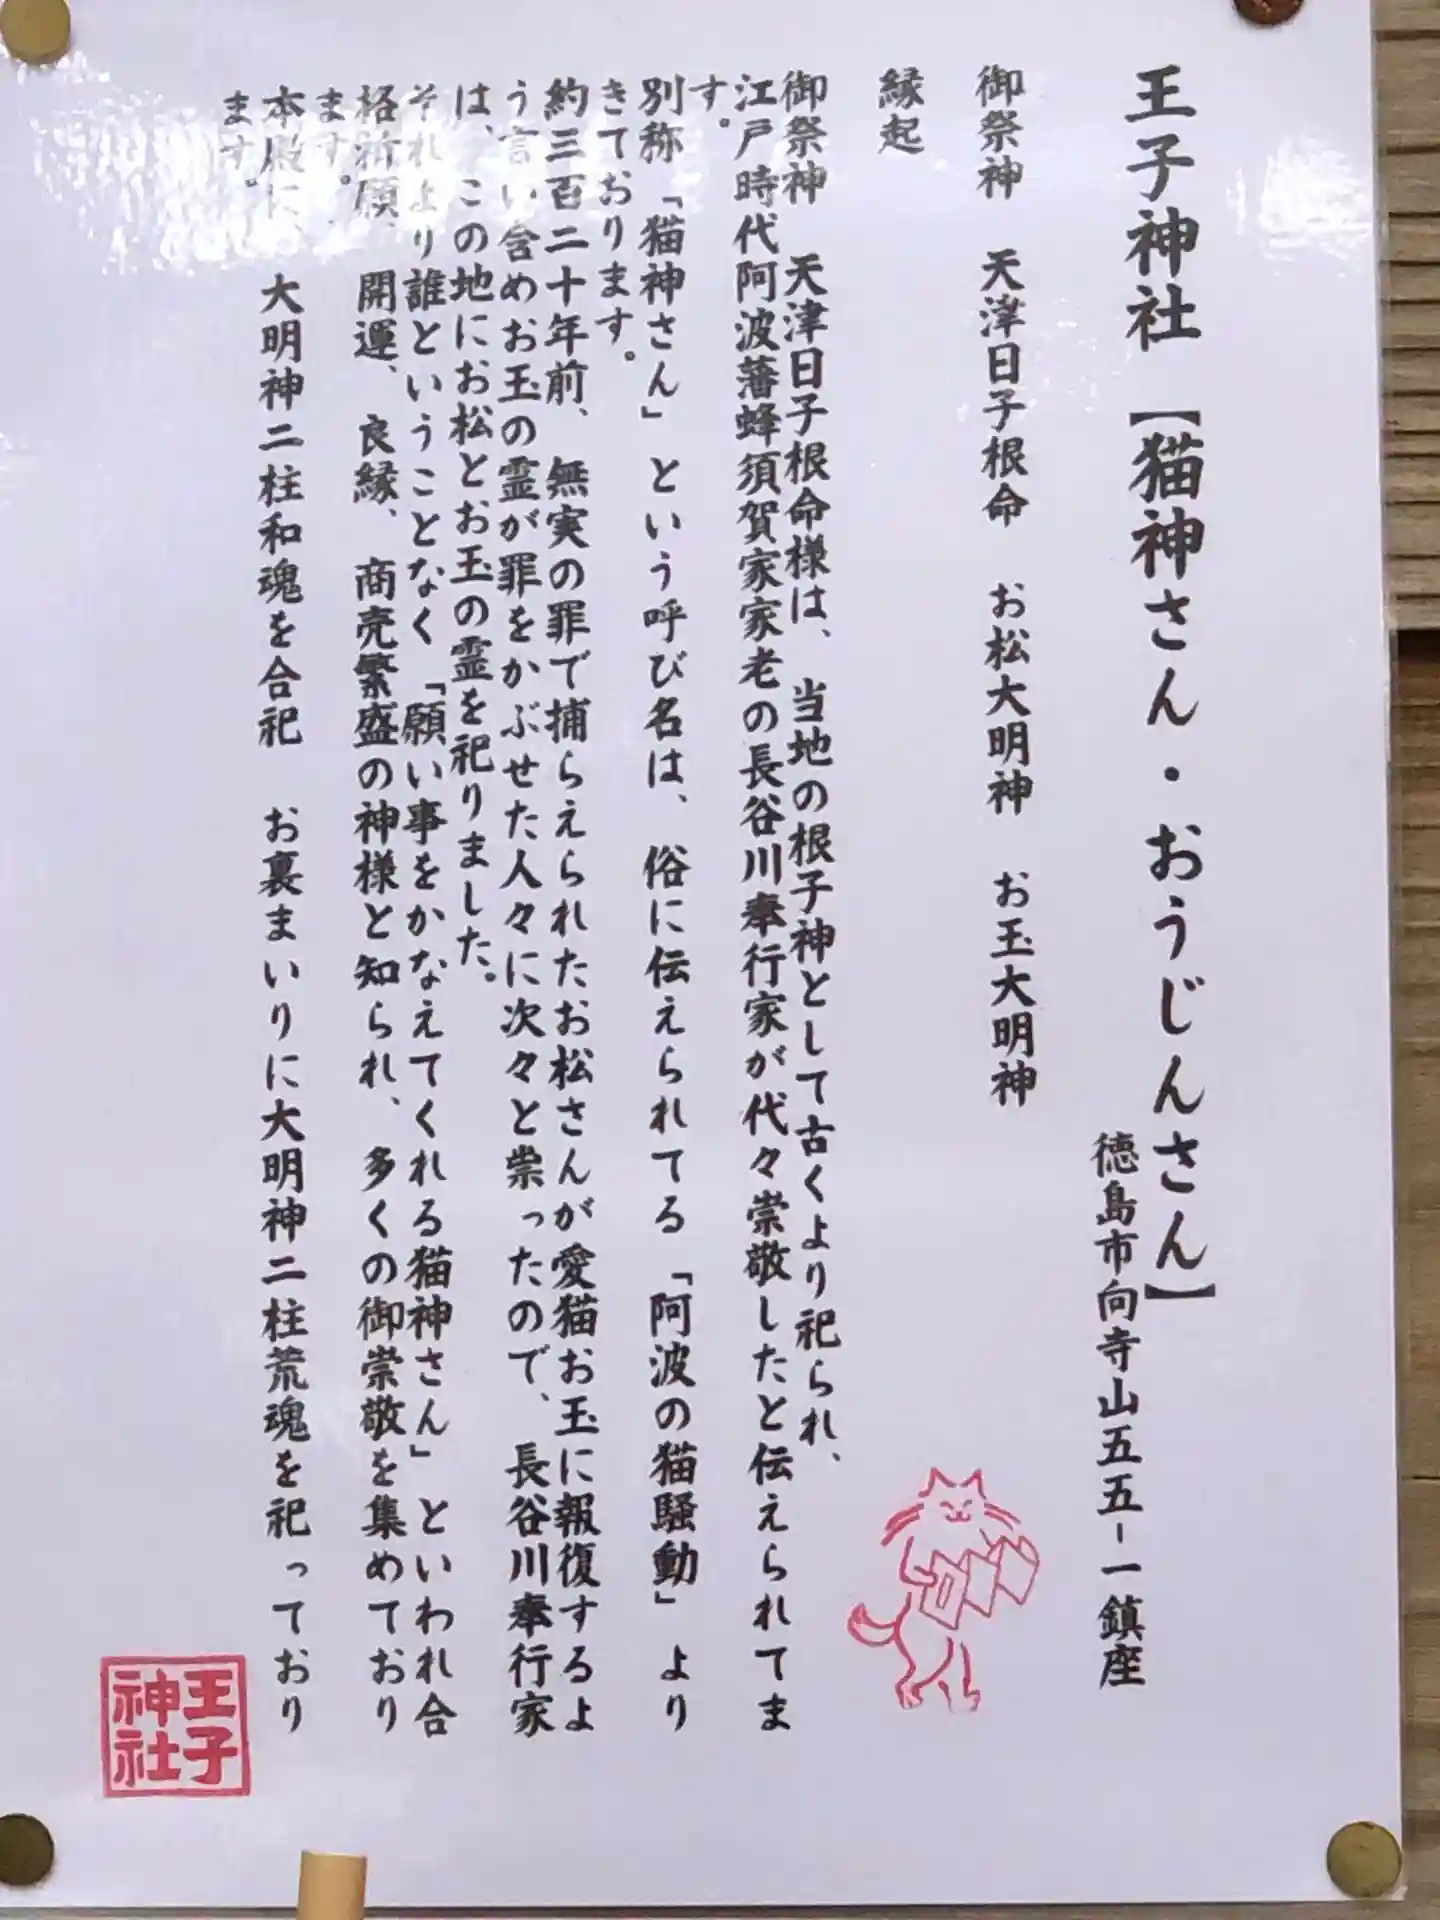 王子神社【猫神さん・おうじんさん】
徳島市向寺山五五-一鎮座
御祭神　天津日子根命　お松大明神　お玉大明神
縁起
御祭神　天津日子根命様は、当地の根子神として古くより祀られ、
江戸時代阿波藩蜂須賀家家老の長谷川奉行家が代々崇敬したと伝えられてま
す。
別称「猫神さん」という呼び名は、俗に伝えられてる「阿波の猫騒動」より
きております。
約三百二十年前、無実の罪で捕らえられたお松さんが愛猫お玉に報復するよ
う言い含めお玉の霊が罪をかぶせた人々に次々と祟ったので、長谷川奉行家
は、この地にお松とお玉の霊を祀りました。
それより誰ということなく「願い事をかなえてくれる猫神さん」といわれ合
格祈願、開運、良縁、商売繁盛の神様と知られ、多くの御崇敬を集めており
ます。
本殿に、大明神二柱和魂を合祀　お裏まいりに大明神二柱荒魂を祀っており
ます。
王子
神社